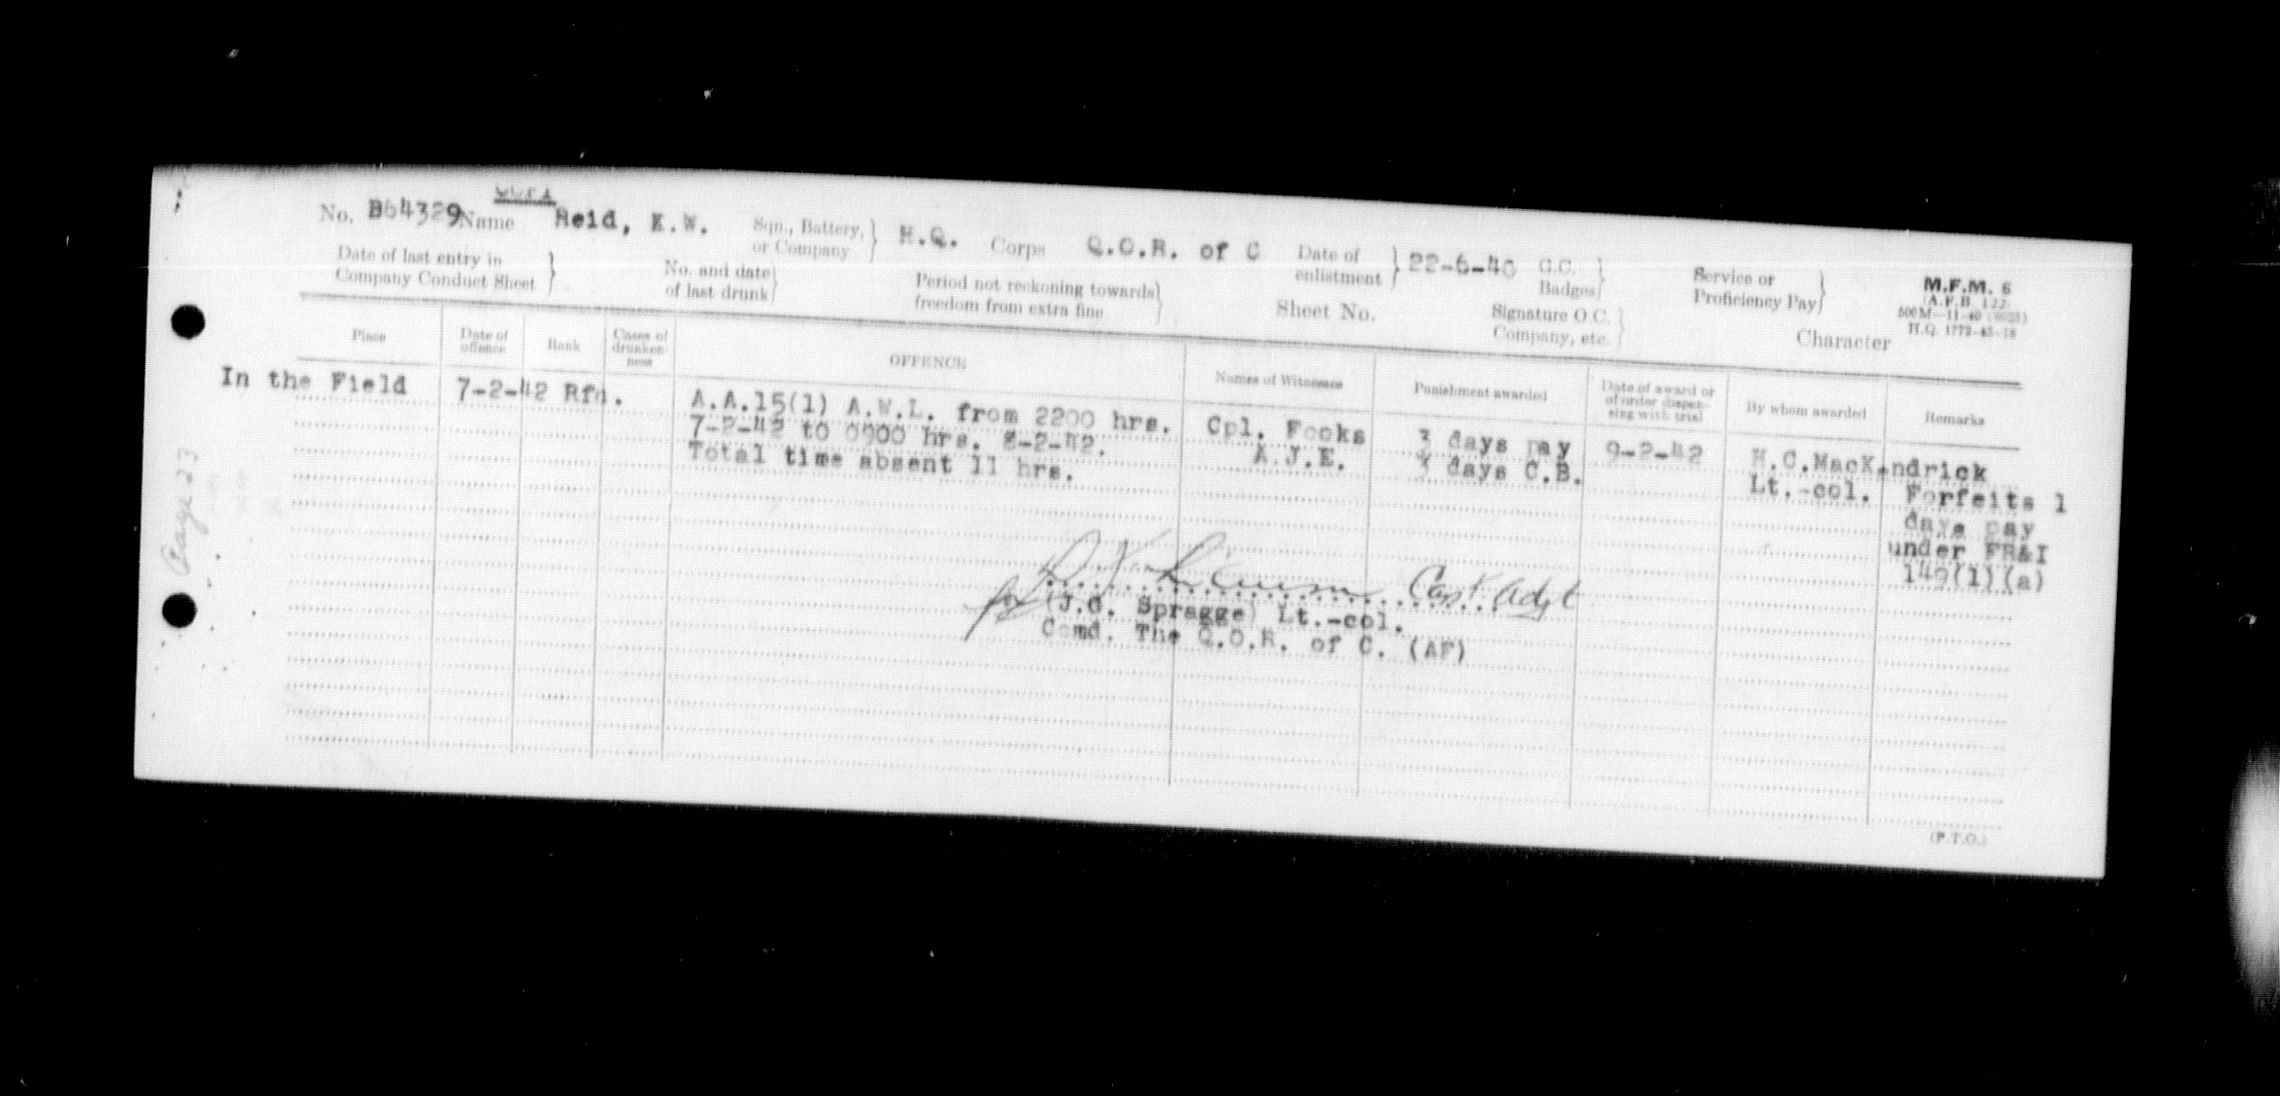 COPY
No. B64329 Name Reid, K.W. Sqn., Battery, or Company } H.Q. Corps Q.O.R. of C Date of enlistment } 22-6-40 G.C. Badges } Service or Proficiency Pay } M.F.M. 6
(A.F.B 122)
H.Q. 1772-45-18
Date of last entry in Company Conduct Sheet } No. and date of last drunk } Period not reckoning towards freedom from extra fine } Sheet No. Signature O.C. Company, etc. } Character
Place Date of offence Rank Cases of drunkenness OFFENCE Names of Witnesses Punishment awarded Date of award or of order dispensing with trial By whom awarded Remarks
In the Field 7-2-42 Rfn. A.A.15(1) A.W.L. from 2200 hrs. Cpl. Fooks 3 days pay 9-2-42 H.C.MacKendrick
7-2-42 to 0900 hrs. 8-2-42. A.J.E. 3 days C.B. Lt.-col. Forfeits 1
Total time absent 11 hrs. days pay
under FR&I
149(1)(a)
Capt Adjt
for (J.G. Spragge) Lt.-col.
Comd. The Q.O.R. of C. (AF)
Page 23
(P.T.O.)